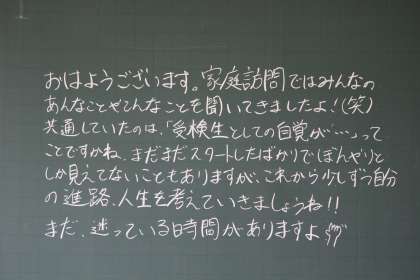 おはようございます。家庭訪問ではみんなの
あんなことやこんなことを聞いてきましたよ!(笑)
共通していたのは、「受検生としての自覚が…」って
ことですかね、まだまだスタートしたばかりでぼんやりと
しか見えてないこともありますが、これから少しずつ自分
の進路、人生を考えていきましょうね!!
まだ、迷っている時間がありますよ